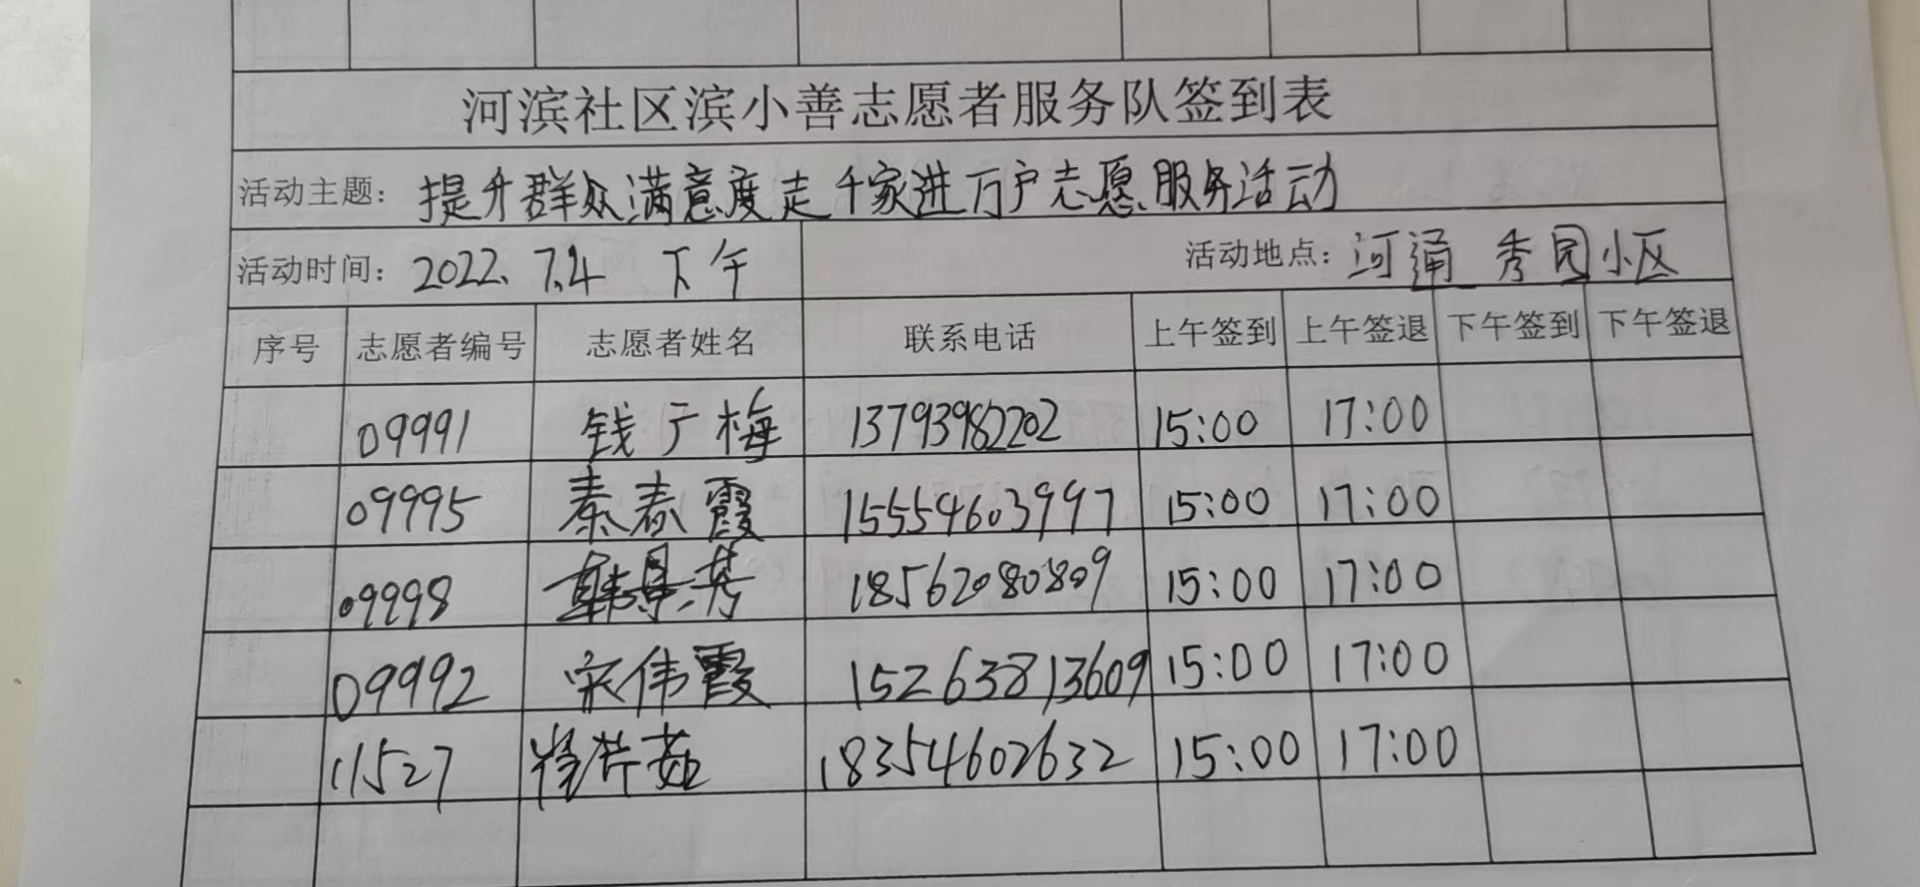 河滨社区滨小善志愿者服务队签到表
活动主题：提升群众满意度走千家进万户志愿服务活动
活动时间：2022.7.4 下午 活动地点：河涌 秀园小区
序号 志愿者编号 志愿者姓名 联系电话 上午签到 上午签退 下午签到 下午签退
09991 钱广梅 13793982202 15:00 17:00
09995 秦春霞 15554603997 15:00 17:00
09998 韩景芳 18562080809 15:00 17:00
09992 宋伟霞 15263813609 15:00 17:00
11527 芹茹 18354602632 15:00 17:00